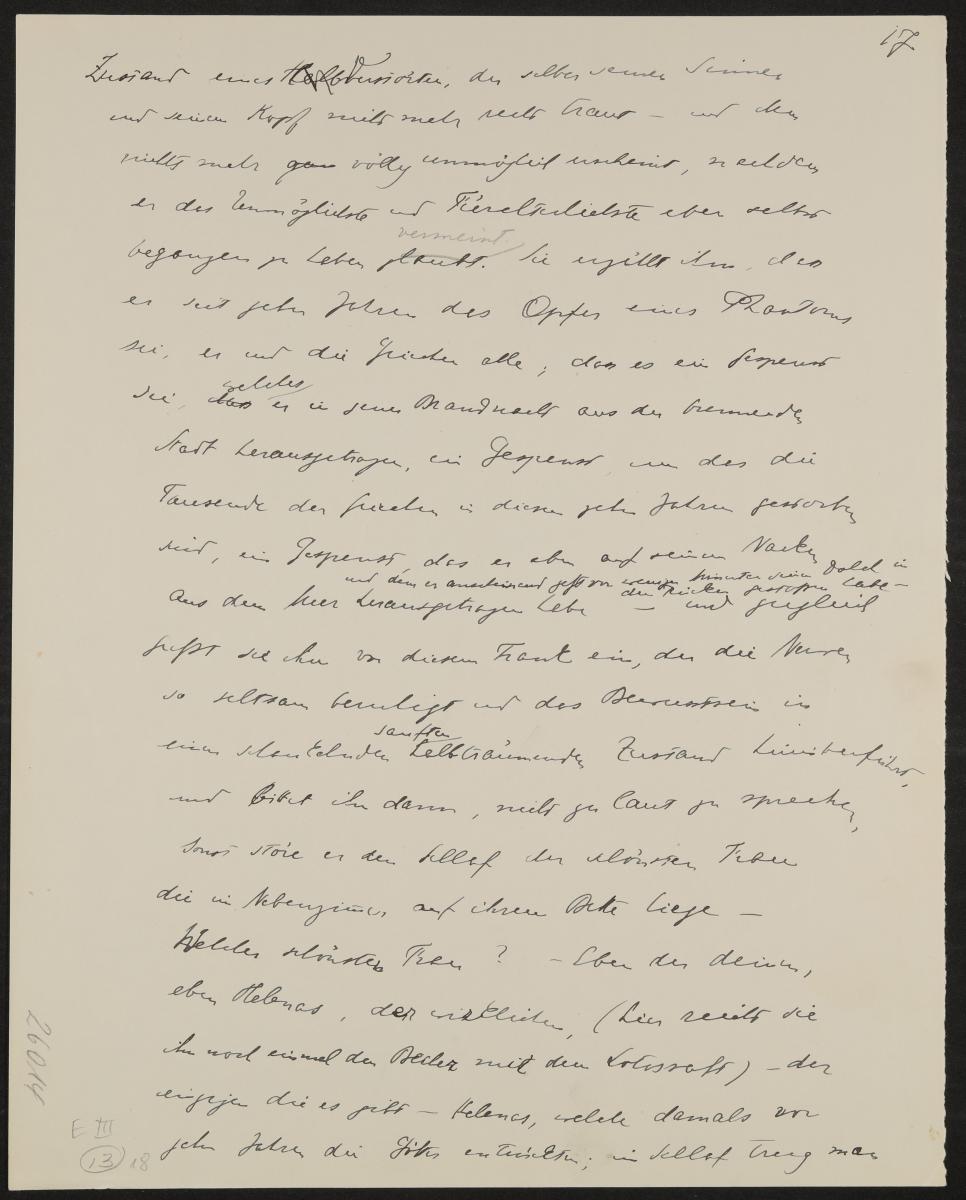 17
Zustand eines Halbverstörten, der selber seinen Sinnen
und seinem Kopf nicht mehr recht traut – und dem
nichts mehr ganz völlig unmöglich erscheint, nachdem
er das Unmöglichste und Fürchterlichste eben selbst
vermeint.
begangen zu haben glaubt. Sie erzählt ihm, dass
er seit zehn Jahren das Opfer eines Phantoms
sei, er und die Griechen alle; dass es ein Gespenst
welches
sei, das er in jener Brandnacht aus der brennenden
Stadt herausgetragen, ein Gespenst um das die
Tausende der Griechen in diesen zehn Jahren gestorben
sind, ein Gespenst, das er eben auf seinem Nacken
und dem er anscheinend jetzt vor wenigen Minuten seinen Dolch in
den Rücken gestossen habe –
aus dem Meer herausgetragen habe – und zugleich
gießt sie ihm von diesem Trank ein, der die Nerven
so seltsam beruhigt und das Bewusstsein in
sanften
einen schaukelnden halbträumenden Zustand hinüberführt,
und bittet ihn dann, nicht zu laut zu sprechen,
sonst störe er den Schlaf der schönsten Frau
die im Nebenzimmer auf ihrem Bette liege –
Welcher schönsten Frau? – Eben der deinen,
eben Helenas, der wirklichen, (hier reicht sie
ihm noch einmal den Becher mit dem Lotossaft) – der
einzigen die es gibt – Helenas, welche damals vor
zehn Jahren die Götter entrückten; im Schlaf trug man
26014
E III
13 18